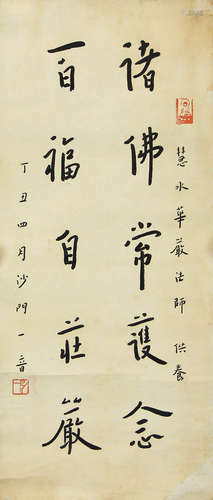 慧水華嚴法師供養
諸佛常護念
百福自莊嚴
丁丑四月沙門一音